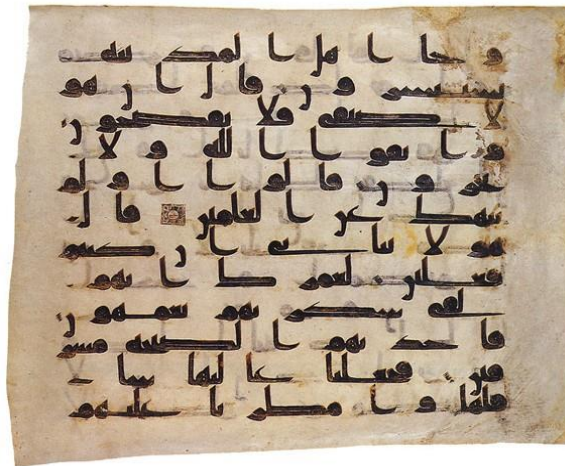 وجا اهل المدينه
يستبشرون قال ان هو
لا ضيفى فلا تفضحون
واتقوا الله ولا
تخزون قالوا اولم
ننهك عن العلمين قال
هولا بناتى ان كنتم
فعلين لعمرك انهم
لفى سكرتهم يعمهون
فاخذتهم الصيحه مشر
قين فجعلنا عاليها سا
فلها وامطرنا عليهم